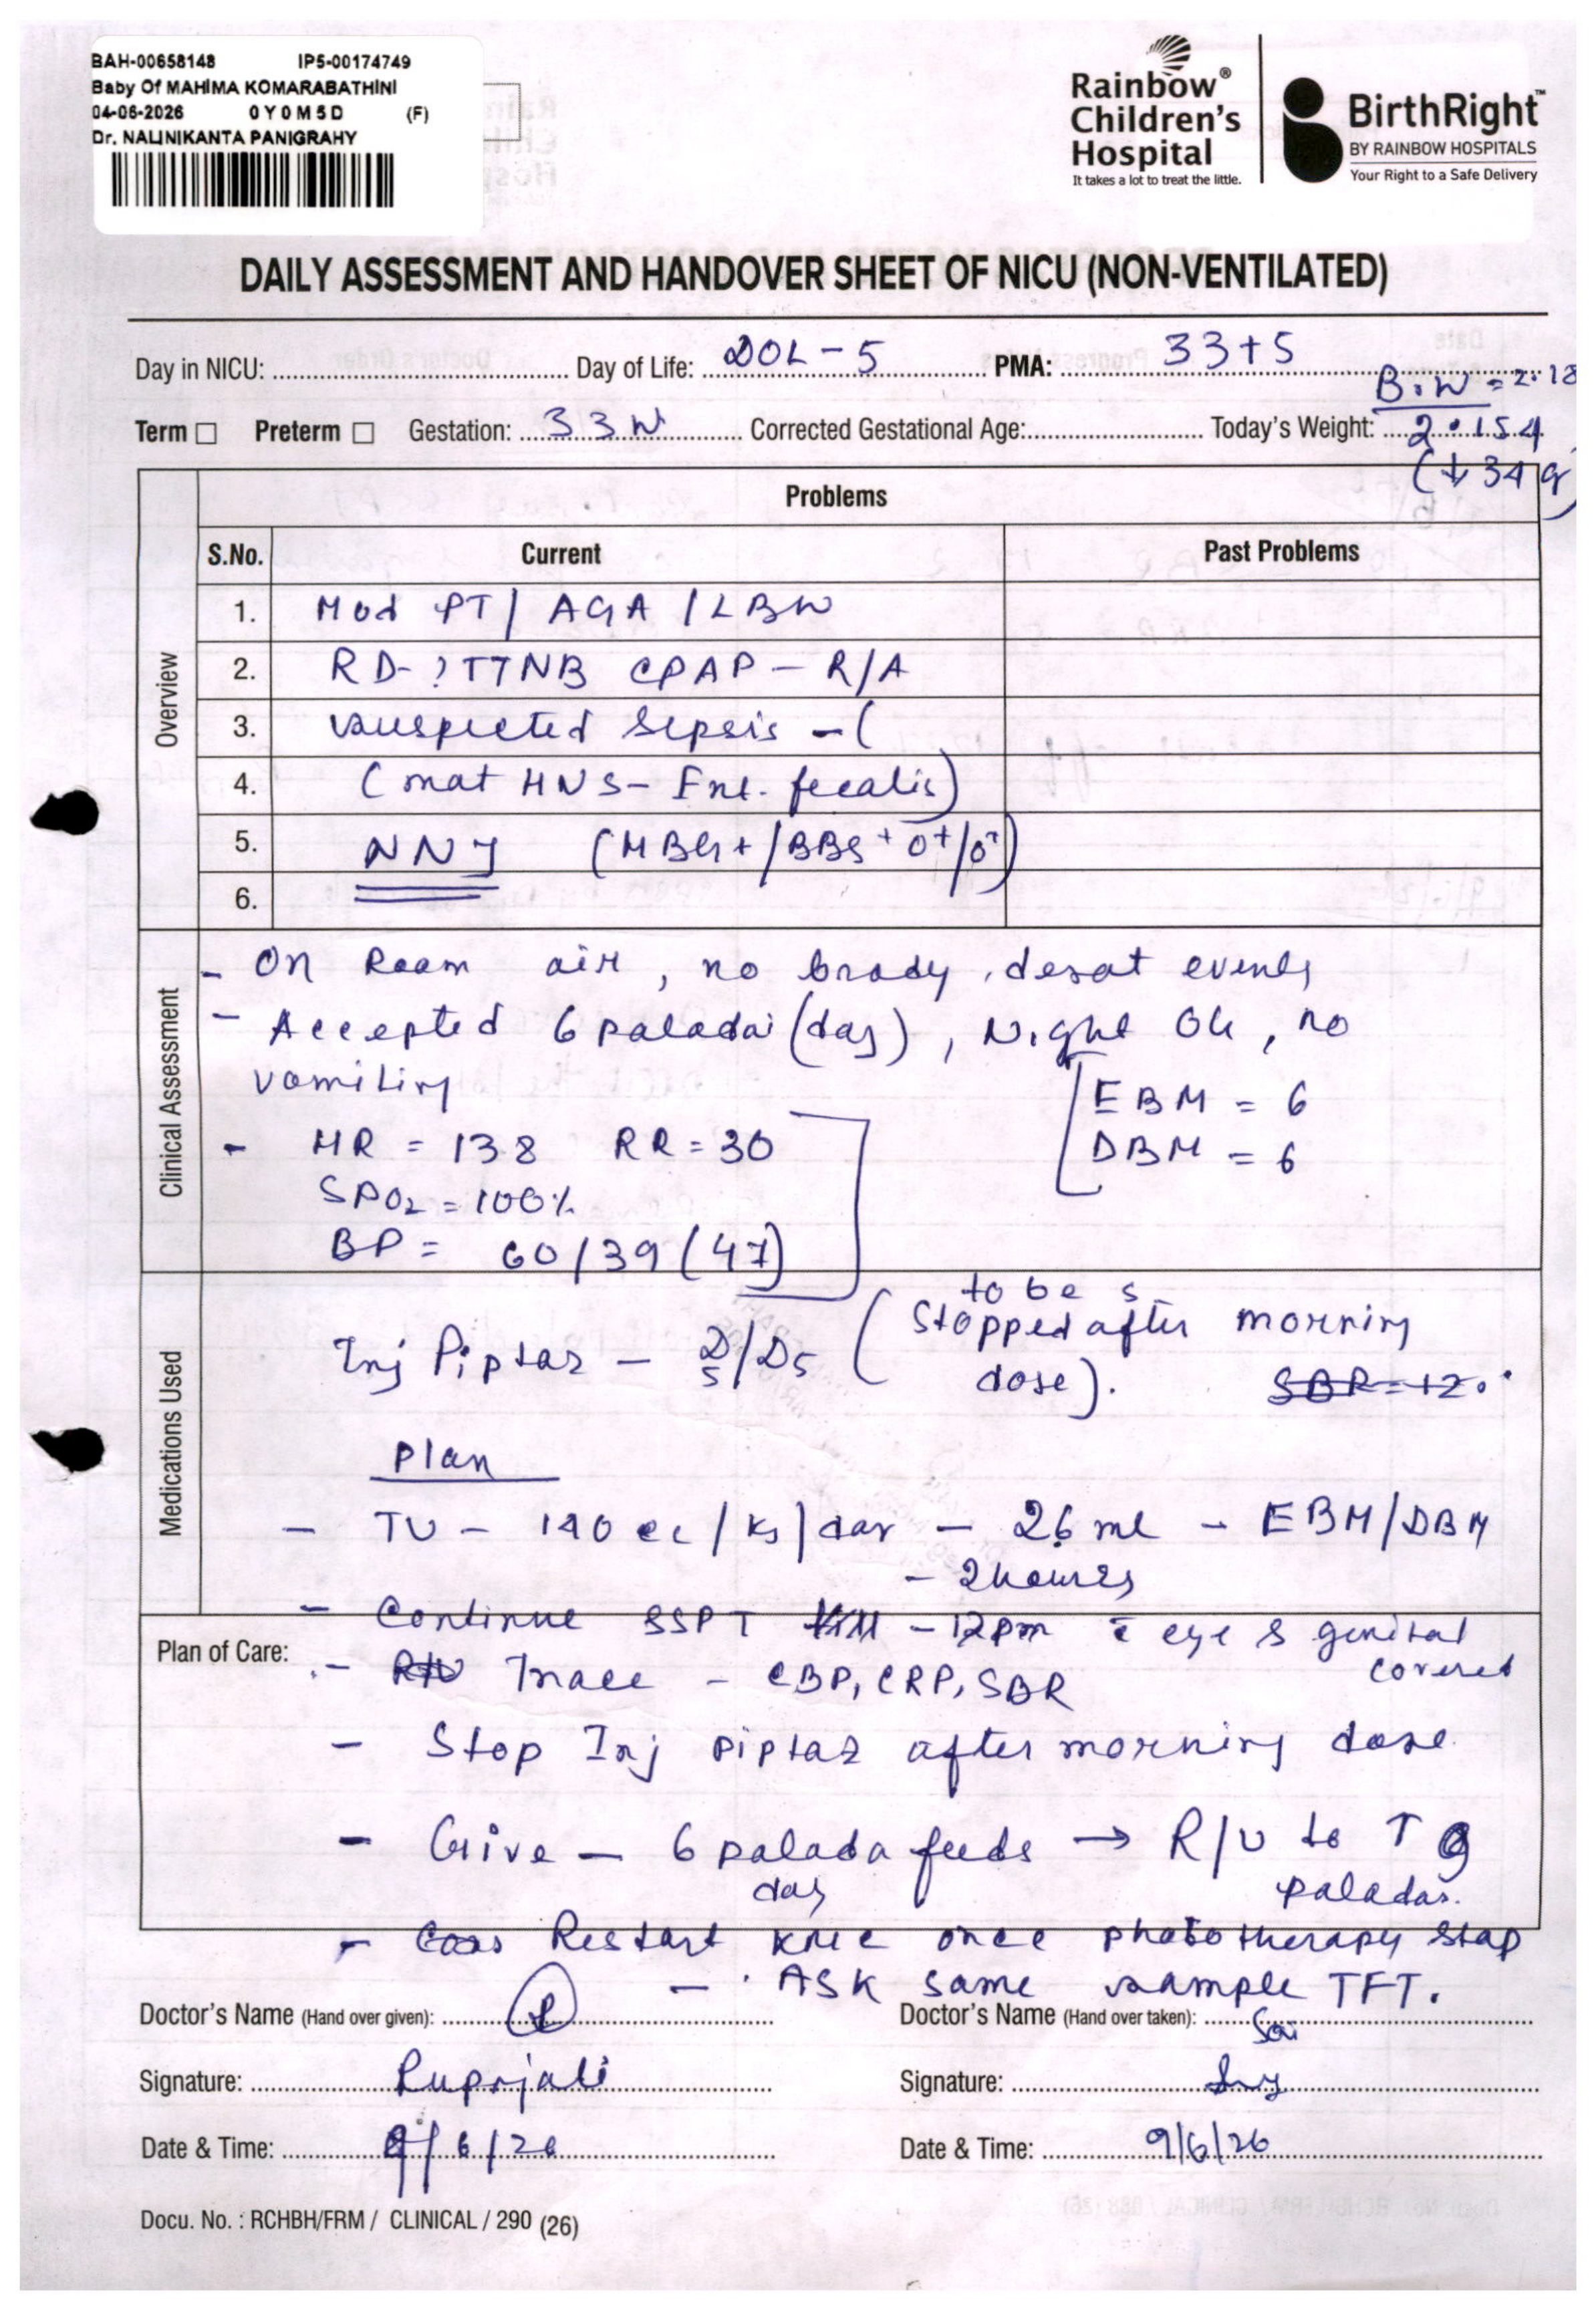 BAH-00658148 IP5-00174749
Baby Of MAHIMA KOMARABATHINI
04-06-2026 0Y0M5D (F)
Dr. NALINIKANTA PANIGRAHY
Rainbow®
Children's
Hospital
It takes a lot to treat the little.
BirthRight™
BY RAINBOW HOSPITALS
Your Right to a Safe Delivery
DAILY ASSESSMENT AND HANDOVER SHEET OF NICU (NON-VENTILATED)
Day in NICU: Day of Life: DOL-5 PMA: 33+5
B.W = 2.18
Term ☐ Preterm ☐ Gestation: 33W Corrected Gestational Age: Today's Weight: 2.154
(↓34g)
Overview
Problems
S.No. Current Past Problems
1. Mod PT/ AGA /LBW
2. RD-?TTNB CPAP - R/A
3. suspected sepsis - (
4. (mat HVS- Ent. fecalis)
5. NNJ (MBG+/BBG+ O+/O+)
6.
Clinical Assessment
- On Room air, no brady, desat events
- Accepted 6 paladai (day), Night OG, no
vomiting
EBM = 6
DBM = 6
- HR = 138 RR = 30
SPO2 = 100%
BP = 60/39 (47)
Medications Used
to be s
Inj Piptaz - D5/D5 (Stopped after morning
dose).
SBR = 12.
Plan
- TV - 140 cc/kg/day - 26 ml - EBM/DBM
- 2 hourly
- Continue SSPT - 12pm c̄ eye & genital
covered
Plan of Care:
- Trace - CBP, CRP, SBR
- Stop Inj piptaz after morning dose
- Give - 6 palada feeds → R/V to T 9
day paladai.
- Restart KMC once phototherapy stop
- ASK same sample TFT.
Doctor's Name (Hand over given): Doctor's Name (Hand over taken): Sai
Signature: Rupanjali Signature:
Date & Time: 9/6/26 Date & Time: 9/6/26
Docu. No. : RCHBH/FRM / CLINICAL / 290 (26)